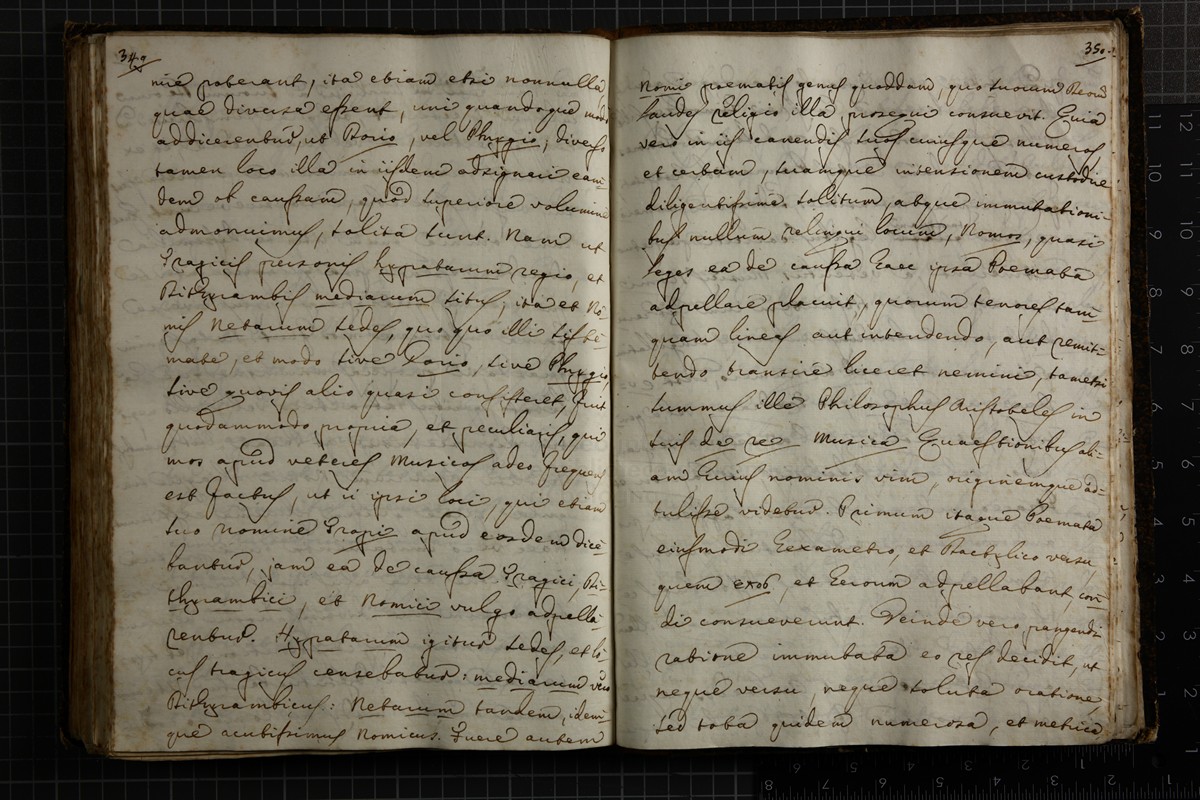 349
nie poterant, ita etiam etsi nonnulla,
quae diversa essent, uni quandoque modo
addicerentur, ut Dorio, vel Phrygio; diverso
tamen loco illa in iisdem adsignari eam-
dem ob caussam, quod superiore volumine
admonuimus, solita sunt. Nam ut
Tragicis personis Hypatarum regio, et
Dithyrambis mediarum situs; ita et No-
mis Netarum sedes, quo quo illi siste-
mate, et modo sive Dorio, sive Phrygio,
sive quovis alio quasi consisteret, fuit
quodammodo propria, et peculiaris, qui
mos apud veteres Musicos adeo frequens
est factus, ut ii ipsi loci, qui etiam
suo nomine Tropi apud eosdem dice-
bantur, jam ea de caussa Tragici, Di-
thyrambici, et Nomici vulgo adpella-
rentur. Hypatarum igitur sedes, et lo-
cus tragicus censebatur: mediarum vero
Dithyrambicus: Netarum tandem, idem-
que acutissimus Nomicus. Fuere autem
350
Nomi poematis genus quoddam, quo suorum Deorum
laudes religio illa prosequi consuevit. Quia
vero in iis canendis suos cuiusque numeros
et certum, suamque intensionem custodire
diligentissime solitum, atque immutationi-
bus nullum relinqui locum, Nomos, quasi
leges ea de caussa haec ipsa Poemata
adpellare placuit, quorum tenores tam-
quam lineas aut intendendo, aut remit-
tendo transire liceret nemini, tametsi
summus ille Philosophus Aristoteles in
suis de re Musica Quaestionibus ali-
am huius nominis vim, originemque ad-
tulisse videtur. Primum itaque Poemata
eiusmodi Hexametro, et Dactylico versu,
quem επος, et Heroum adpellabant, con-
di consueverunt. Deinde vero pangendi
ratione immutata eo res decidit, ut
neque versu, neque soluta oratione,
sed tota quidem numerosa, et metrica